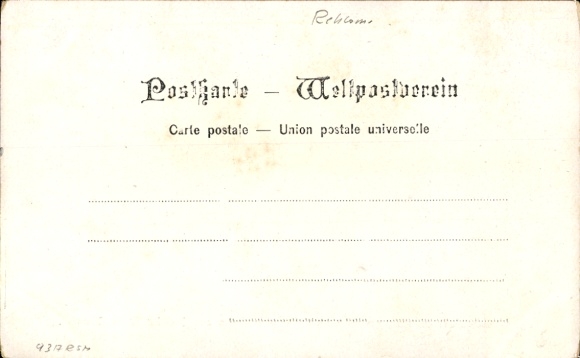 Postkarte — Weltpostverein
Carte postale — Union postale universelle